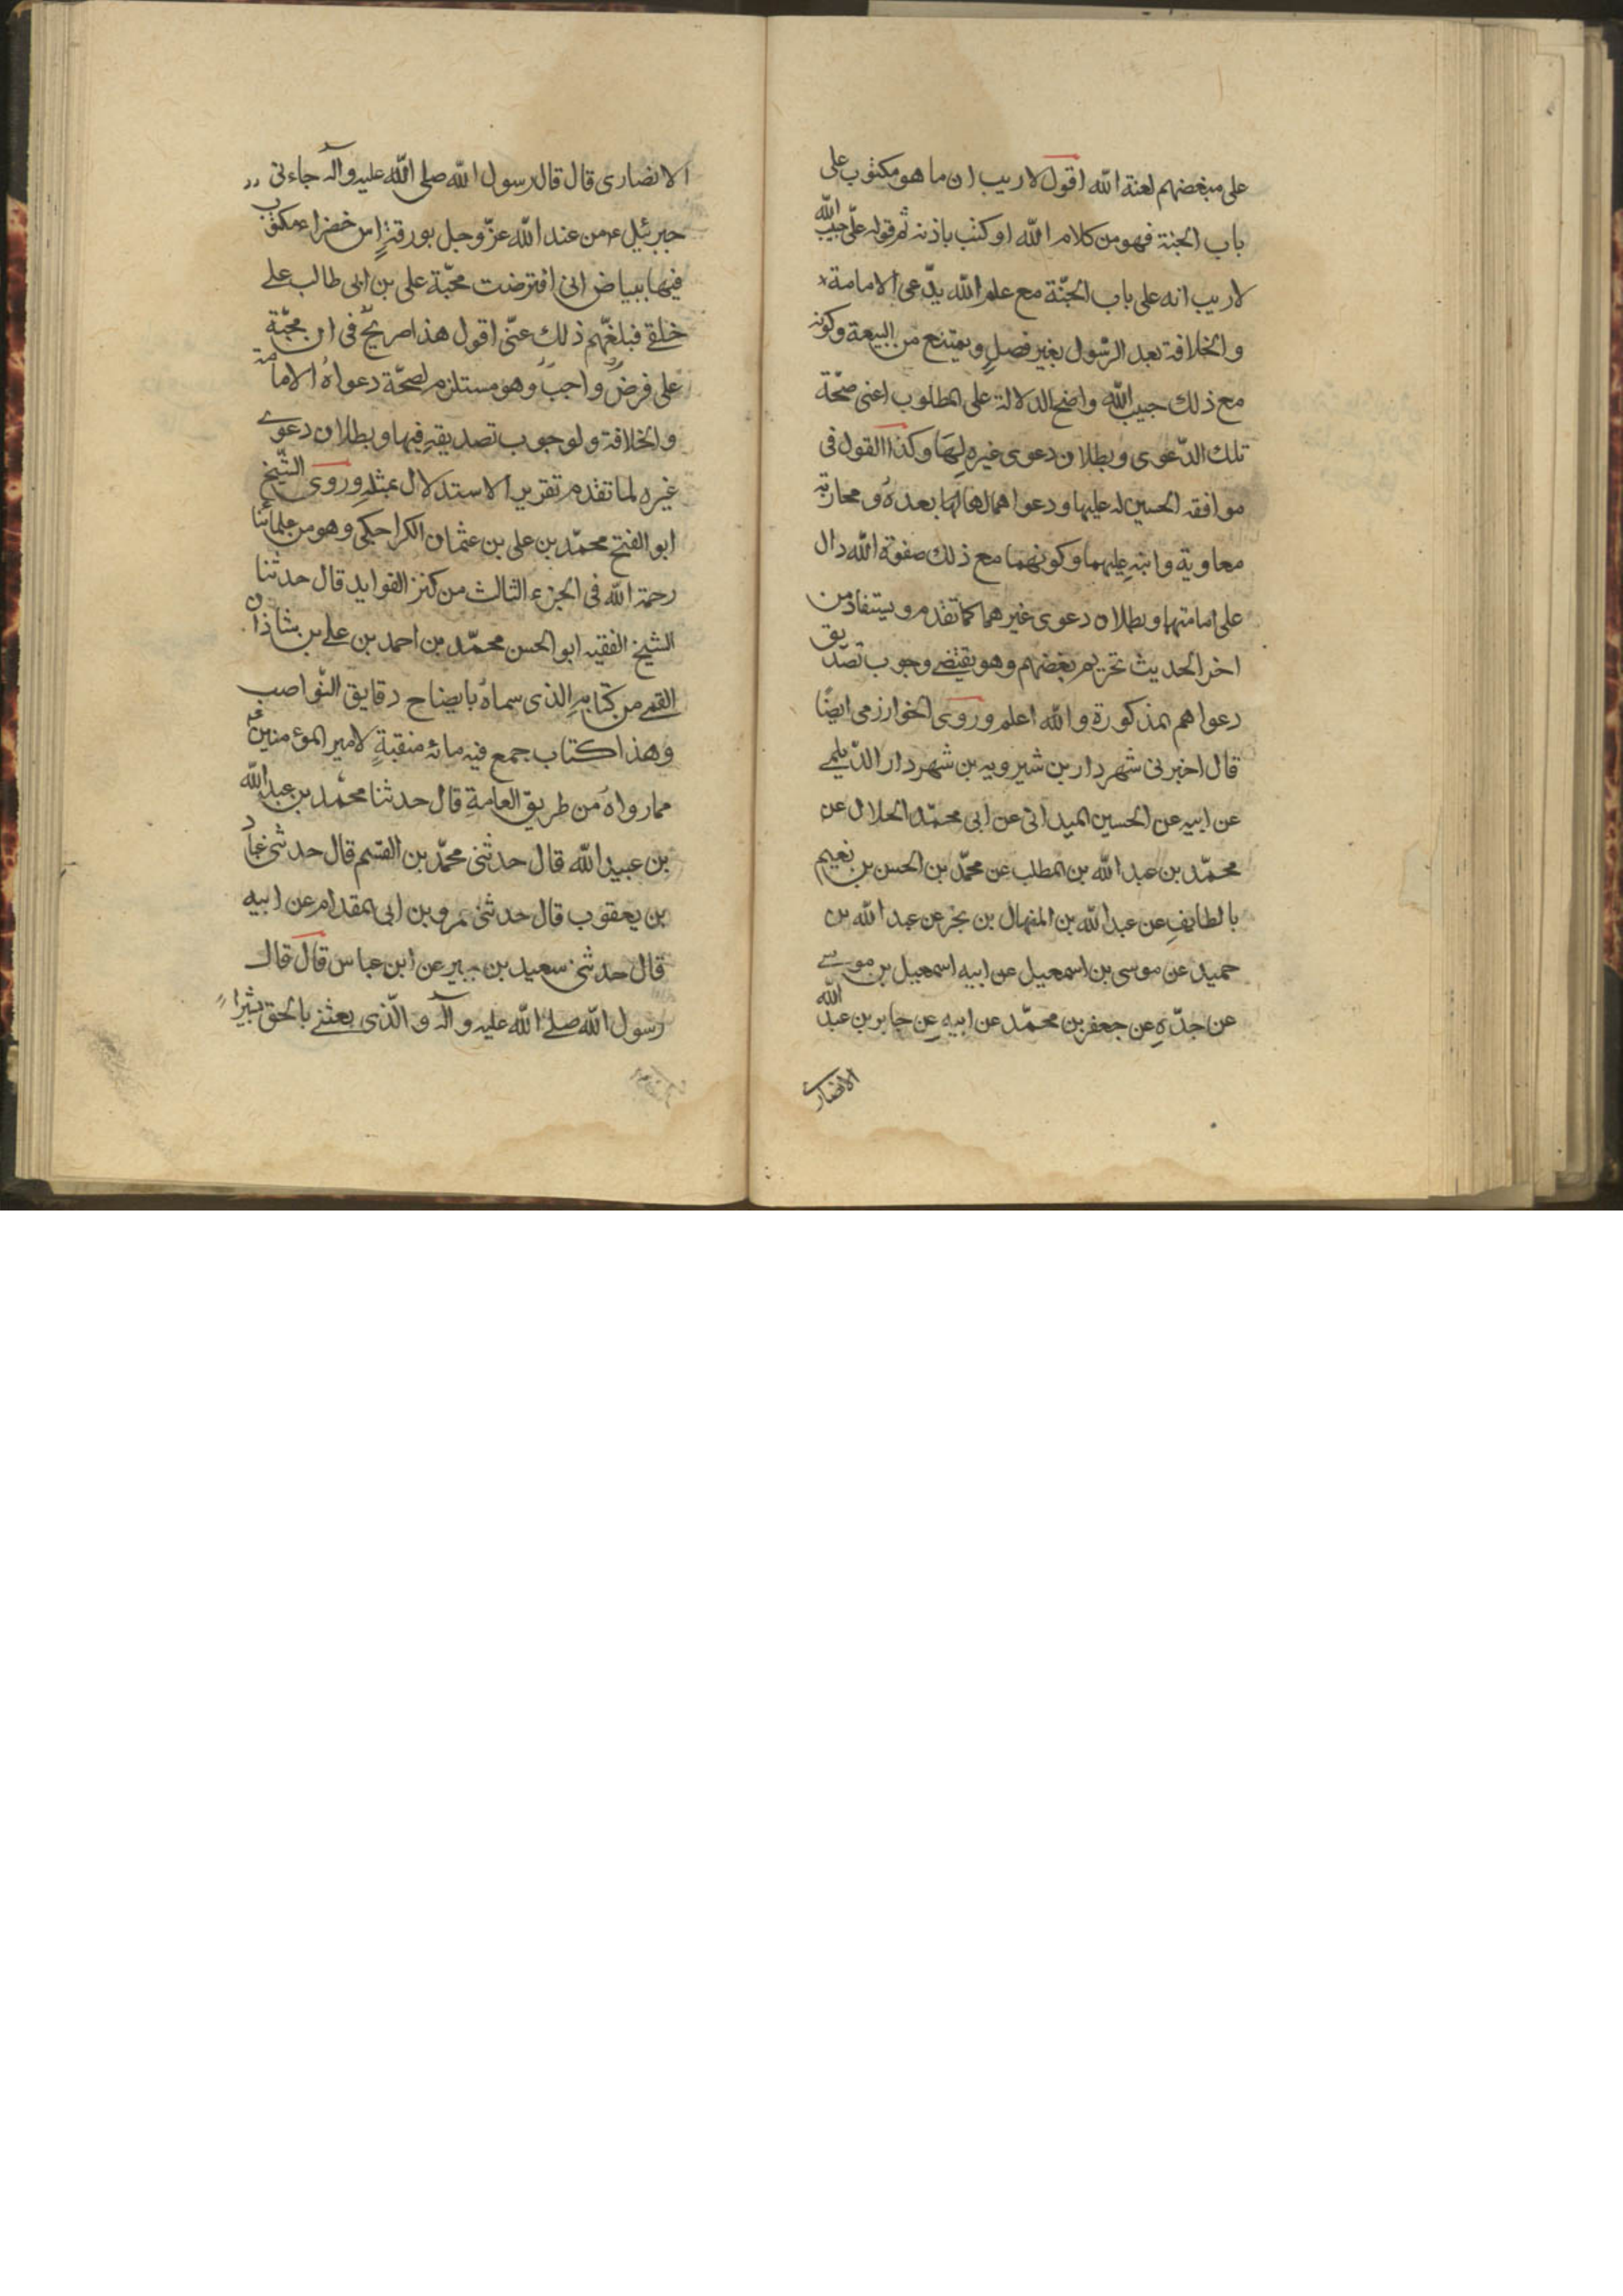 على مبغضهم لعنة الله اقول لا ريب ان ما هو مكتوب على
باب الجنة فهو من كلام الله او كتب باذنه ثم قوله علىّ حبيب الله
لا ريب انه على باب الجنّة مع علم الله يدّعى الامامة
والخلافة بعد الرسول بغير فصلٍ ويمتنع من البيعة وكونه
مع ذلك حبيب الله واضح الدلالة على المطلوب اعنى صحّة
تلك الدّعوى وبطلان دعوى غيره لها وكذا القول فى
موافقه الحسين له عليها ودعواهما لها بعده ومحاربة
معاوية وابنه عليهما وكونهما مع ذلك صفوة الله دال
على امامتهما وبطلان دعوى غيرهما كما تقدم ويستفاد من
اخر الحديث تحريم بغضهم وهو يقتضى وجوب تصديق
دعواهم المذكورة والله اعلم وروى الخوارزمى ايضًا
قال اخبرنى شهردار بن شيرويه بن شهردار الدّيلمى
عن ابيه عن الحسين الميدانى عن ابى محمّد الخلال عن
محمّد بن عبد الله بن المطلب عن محمّد بن الحسن بن نعيم
بالطايف عن عبد الله بن المنهال بن بحر عن عبد الله بن
حميد عن موسى بن اسمعيل عن ابيه اسمعيل بن موسى
عن جدّه عن جعفر بن محمّد عن ابيه عن جابر بن عبد الله
الانصارى
الانصارى قال قال رسول الله صلى الله عليه وآله جاءنى
جبرئيل ع من عند الله عزّ وجل بورقةِ اس خضراء مكتوب
فيها ببياض انى افترضت محبّة على بن ابى طالب على
خلقى فبلغهم ذلك عنّى اقول هذا صريحٌ فى ان محبّة
على فرضٌ واجبٌ وهو مستلزم لصحّة دعواه الامامة
والخلافة ولوجوب تصديقهِ فيها وبطلان دعوى
غيره لما تقدم تقرير الاستدلال بمثلهِ وروى الشّيخ
ابو الفتح محمّد بن على بن عثمان الكراجكى وهو من علمائنا
رحمة الله فى الجزء الثالث من كنز الفوايد قال حدثنا
الشيخ الفقيه ابو الحسن محمّد بن احمد بن على بن شاذان
القمى من كتابهِ الذى سماه بايضاح دقايق النّواصب
وهذا كتاب جمع فيه مائه منقبةٍ لامير المؤمنين ع
مما رواه من طريق العامةِ قال حدثنا محمّد بن عبد الله
بن عبيد الله قال حدثنى محمّد بن القسم قال حدثنى عباد
بن يعقوب قال حدثنى عمرو بن ابى المقدام عن ابيه
قال حدثنى سعيد بن جبير عن ابن عباس قال قال
رسول الله صلى الله عليه وآله والّذى بعثنى بالحق بشيرًا